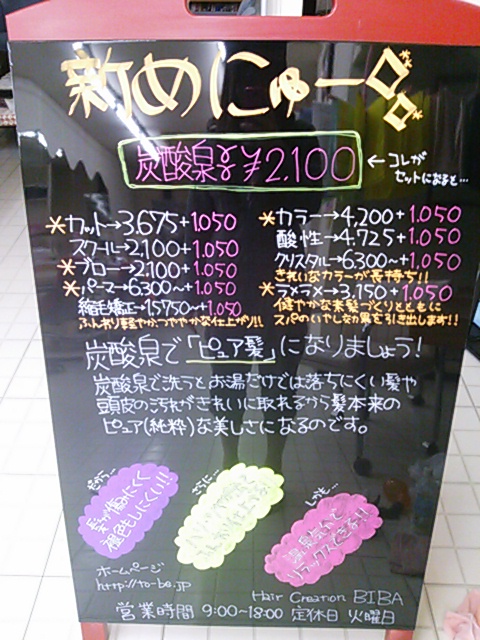 新めにゅー
炭酸泉 ¥2,100
←コレが
セットになると…
※カット→3,675+1,050
スクール→2,100+1,050
※ブロー→2,100+1,050
※パーマ→6300～+1,050
縮毛矯正→15750～+1,050
ふんわり軽やか、つややかな仕上がり!!
※カラー→4,200+1,050
酸性→4,725+1,050
クリスタル→6300～+1,050
きれいなカラーが長持ち!!
※ラメラメ→3,150+1,050
健やかな素髪づくりとともに
スパのいやし効果を引き出します!!
炭酸泉で「ピュア髪」になりましょう!
炭酸泉で洗うとお湯だけでは落ちにくい髪や
頭皮の汚れがきれいに取れるから髪本来の
ピュア(純粋)な美しさになるのです。
だから…
髪が傷みにくく
褪色もしにくい!!
さらに…
しかも…
リラックスできる!!
ホームページ
http://to-be.jp
Hair Creation BIBA
営業時間 9:00～18:00 定休日 火曜日